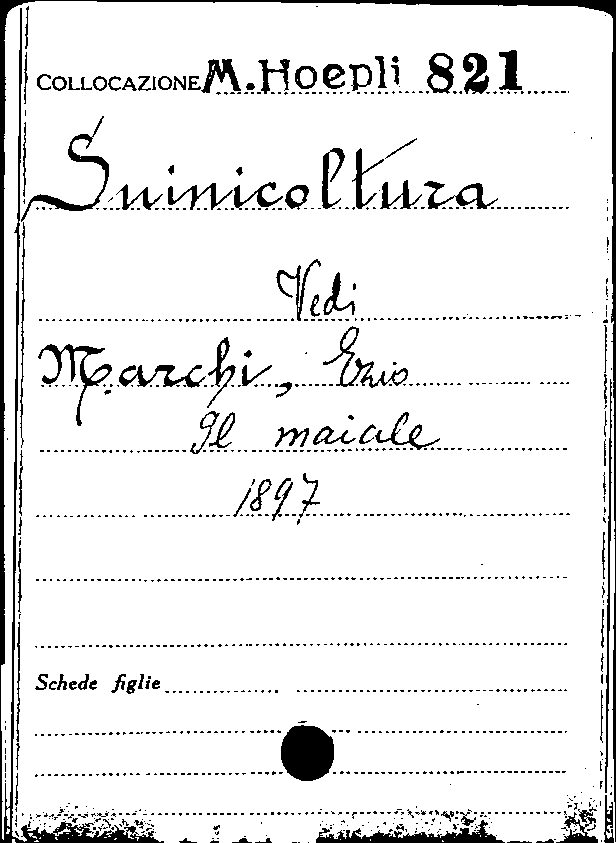 COLLOCAZIONE M. Hoepli 821
Suinicoltura
Vedi
Marchi, Ezio
Il maiale
1897
Schede figlie